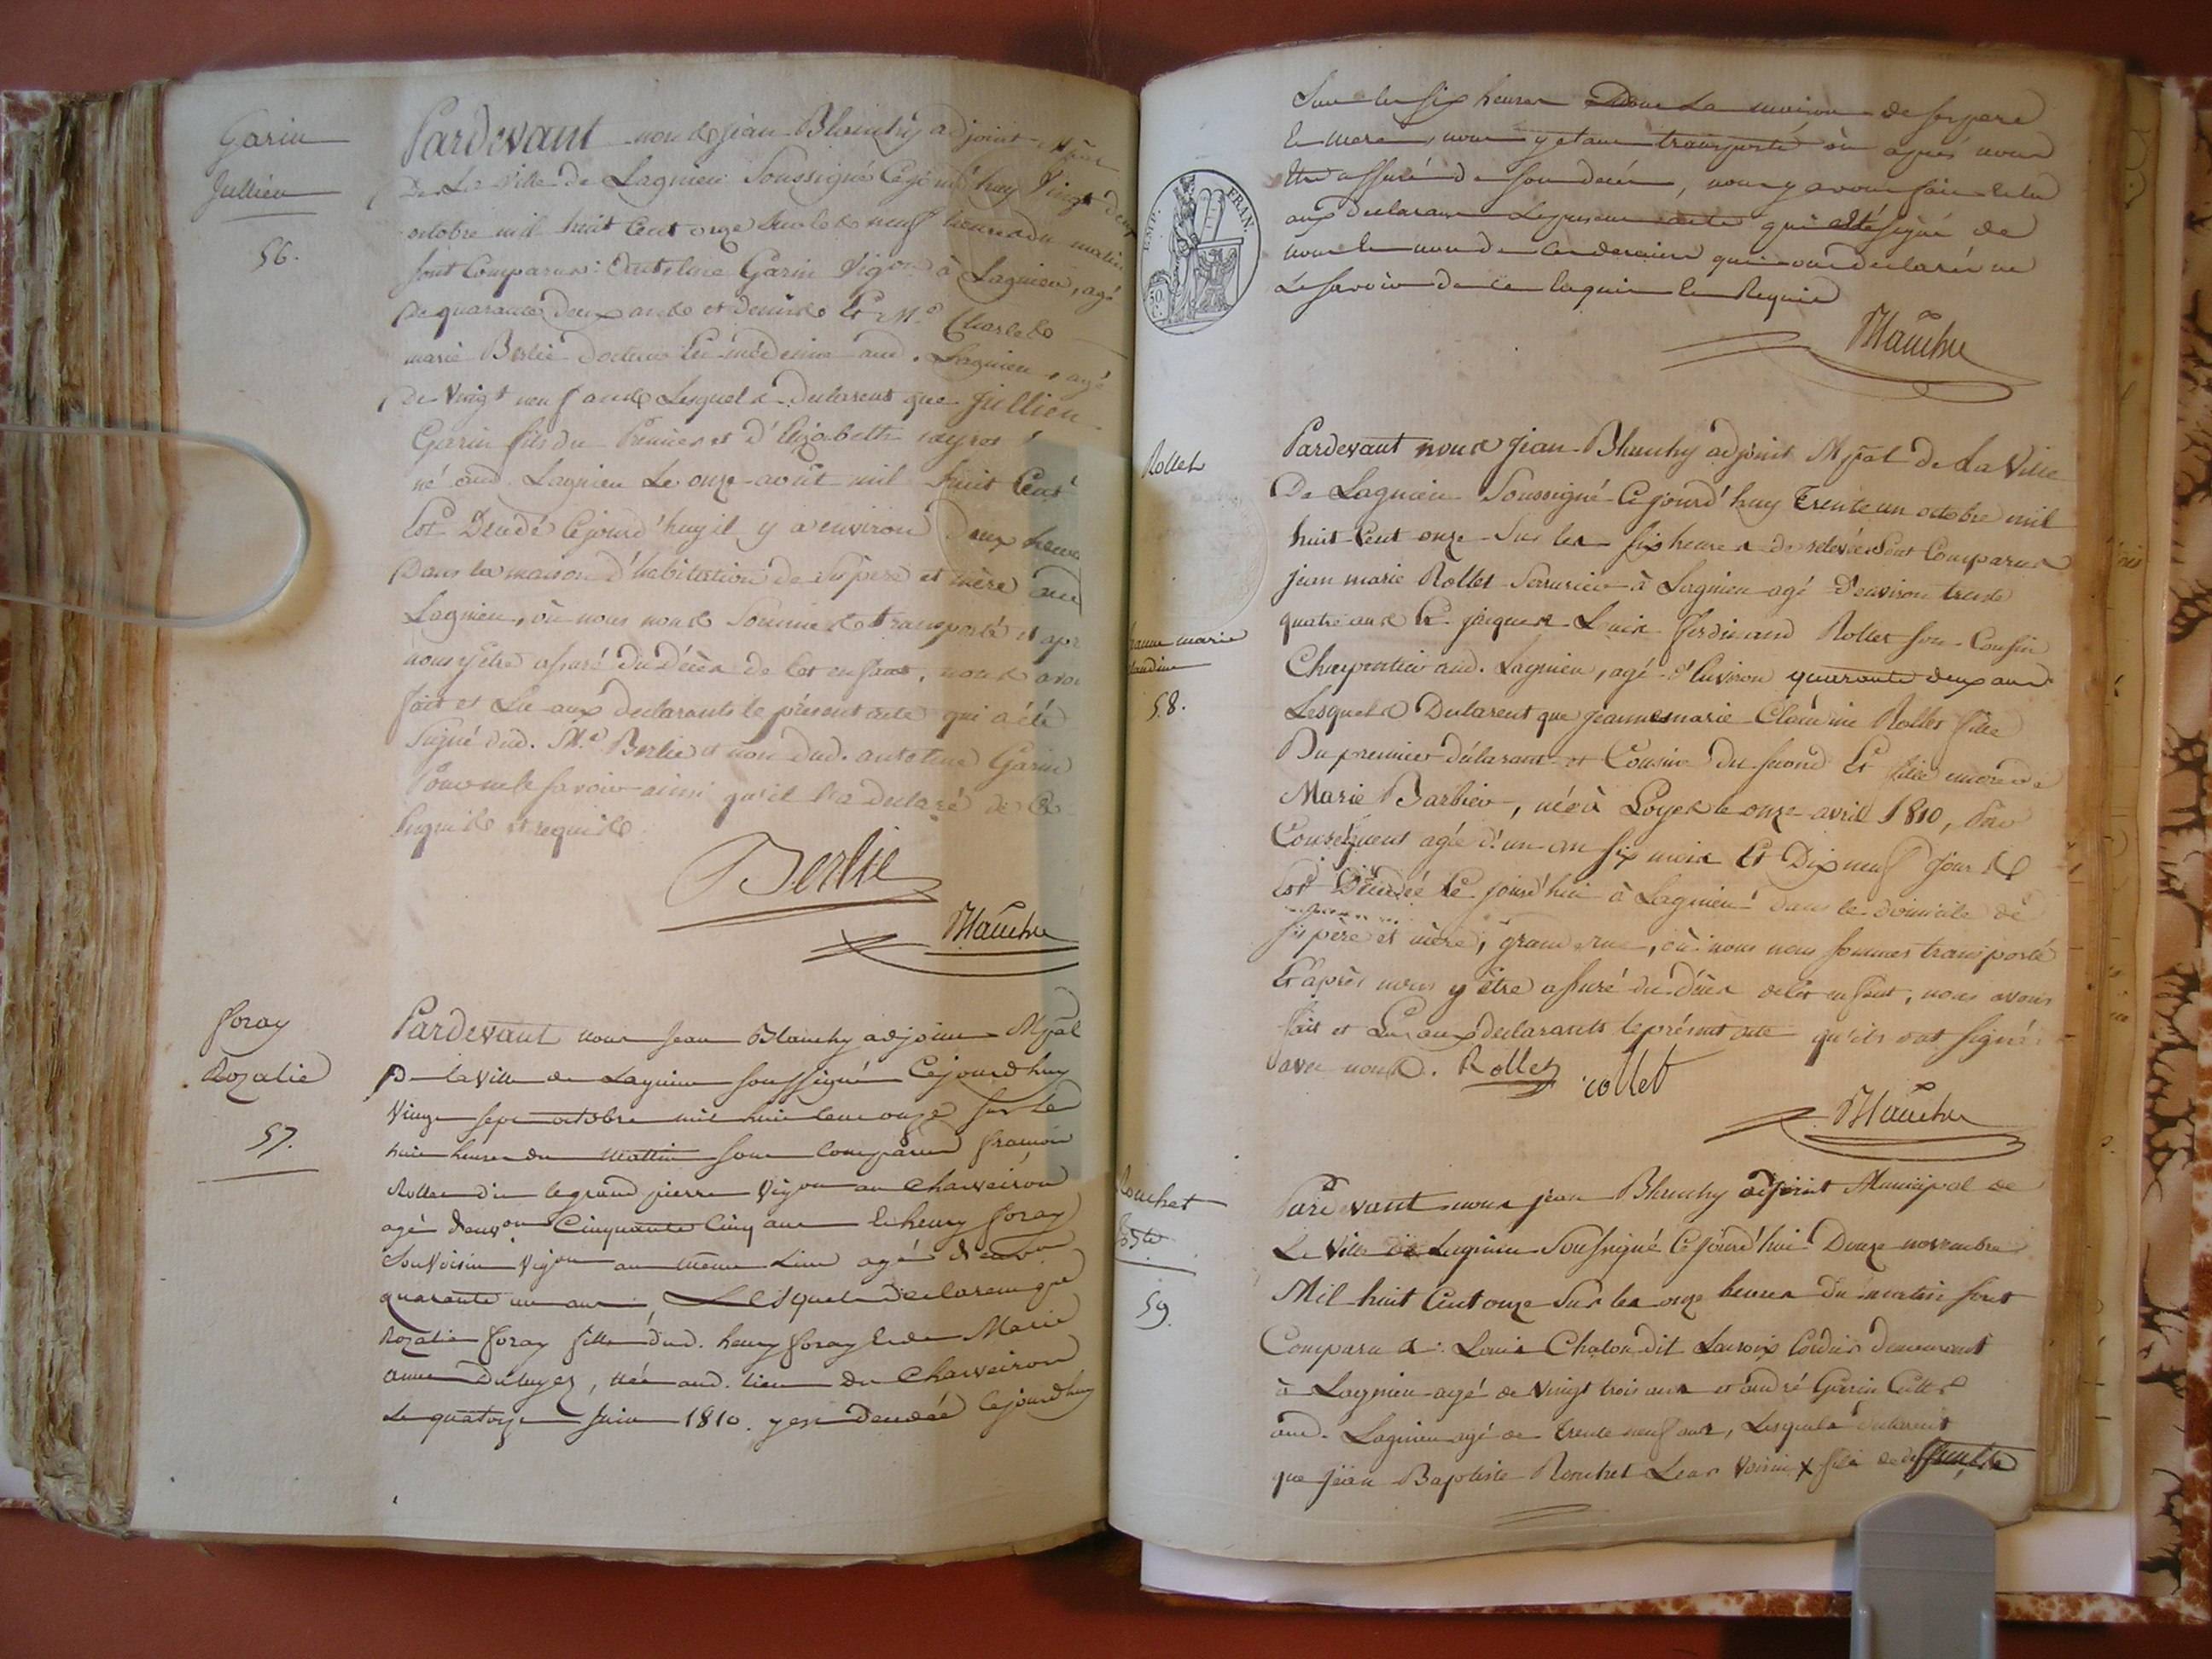 Garin
Jullien
56.
Pardevant nous Jean Blanchy adjoint
De La Ville de Lagnieu Soussigné Cejourd'huy Vingt deux
octobre mil huit Cent onze Sur les neuf heures du matin
sont Comparus: Anteline Garin Vigon à Lagnieu, agé
De quarante deux ans et demis Et Mr. Charles
marie Berlie Docteur En médecine aud. Lagnieu, agé
De Vingt neuf ans Lesquels Declarent que Jullien
Garin fils du Premier et d'Elizabeth
né aud. Lagnieu Le onze août mil huit Cent
Est Décédé Cejourd'huy il y a environ deux heures
Dans la maison d'habitation de ses père et mère aud
Lagnieu, où nous nous Sommes transporté et apr
nous y être assuré du Décès de Cet enfant, nous avo
fait et Lu aux declarants le présent acte qui a été
Signé dud. Mr. Berlie et non dud. anteline Garin
Pour ne le savoir ainsi qu'il l'a declaré de ce
Enquis et requis.
Berlie
Blanchy
foray
Rozalie
57.
Pardevant nous Jean Blanchy adjoint Mpal
De la Ville de Lagnieu soussigné Cejourdhuy
Vingt sept octobre mil huit cent onze sur les
huit heures du mattin sont Comparus françois
Rollet dit legrand pierre Vigon au Charveiron
agé d'envon Cinquante Cinq ans et henry foray
Son Voisin Vigon au même Lieu agé d'envon
quarante un ans, Lesquels declarent que
Rozalie foray fille dud. henry foray et de Marie
anne , née aud. lieu du Charveiron
Le quatorze Juin 1810. y est décédée Cejourdhuy
Sur les six heures Dans La maison de ses pere
et mere, nous y etant transporté où après nous
être assuré de son décés, nous y avons fait et lu
aux declarans le présent acte qui a été signé de
nous et non de ces derniers qui ont declaré ne
Le savoir de ce Enquis et Requis
Blanchy
EMP. FRAN.
50 C.
Rollet
Jeanne marie
Claudine
58.
Pardevant nous Jean Blanchy adjoint Mpal de La Ville
De Lagnieu Soussigné Cejourd'huy Trente un octobre mil
huit Cent onze Sur les six heures de relevée Sont Comparus
jean marie Rollet Serrurier à Lagnieu agé D'environ trente
quatre ans Et jacques Louis ferdinand Rollet son Cousin
Charpentier aud. Lagnieu, agé d'Environ quarante deux ans
Lesquels Declarent que jeanne marie Claudine Rollet fille
Du premier déclarant et Cousine du second Et fille encore de
Marie Barbier, née à Loyes le onze avril 1810, Par
Conséquent agée d'un an six mois Et Dix neuf Jours
Est Décédée Ce jourd'hui à Lagnieu dans le domicile de
ses père et mère, grande rue, où nous nous sommes transporté
Et après nous y être assuré du Décès de Cet enfant, nous avons
fait et Lu aux déclarants le présent acte qu'ils ont signé
avec nous. Rollet collet
Blanchy
Rouchet
Bste
59.
Pardevant nous jean Blanchy adjoint Municipal de
La Ville de Lagnieu Soussigné Cejourd'hui Douze novembre
Mil huit Cent onze Sur les onze heures du matin sont
Comparus: Louis Chalon dit Lacroix Cordier demeurant
à Lagnieu agé de Vingt trois ans et andré Garin Cultr
aud. Lagnieu agé de trente neuf ans, Lesquels declarent
que jean Baptiste Rouchet Leur Voisin X fils de deffunt